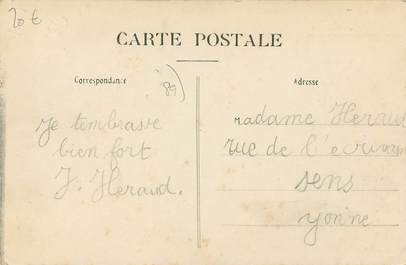 20 €
CARTE POSTALE
Correspondance
(89)
Adresse
Je tembrasse
bien fort
J. Heraud.
Madame Heraud
rue de l'écrivain
Sens
Yonne